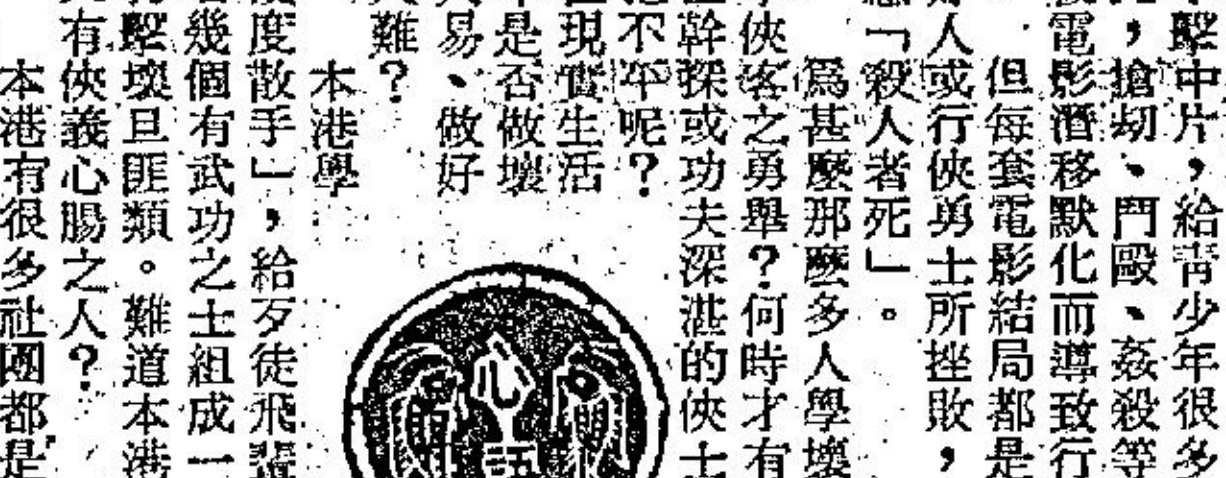 擊中片，給青少年很多
，搶刧、鬥毆、姦殺等
電影潛移默化而導致行
但每套電影結局都是
人或行俠勇士所挫敗，
「殺人者死」。
爲甚麽那麽多人學壞
俠落之勇舉？何時才有
幹探或功夫深湛的俠士
不平呢？
現實生活
是否做壞
易、做好
難？
本港學
度散手」，給歹徒飛
幾個有武功之士組成一
擊壞旦匪類。難道本港
有俠義心腸之人？
本港有很多社團都是
心語